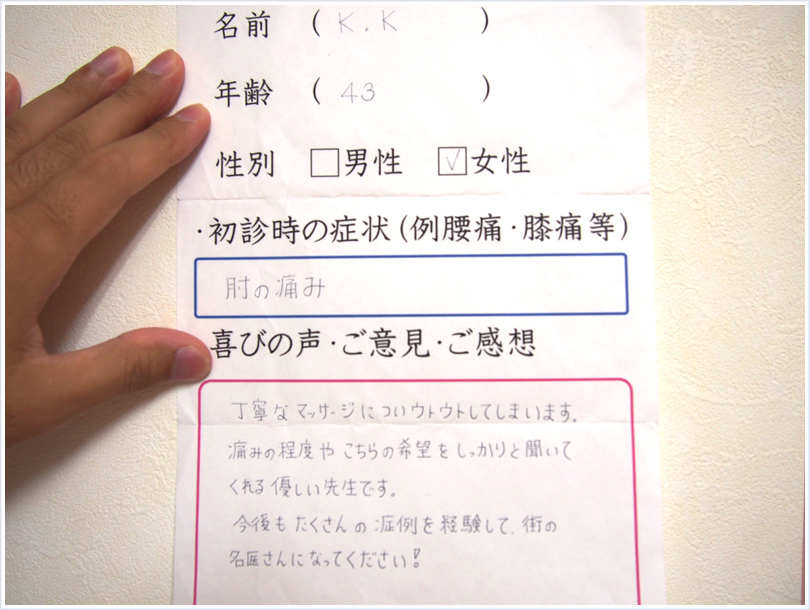 名前 ( K.K )
年齢 ( 43 )
性別 □男性 ☑女性
・初診時の症状(例腰痛・膝痛等)
肘の痛み
喜びの声・ご意見・ご感想
丁寧なマッサージについウトウトしてしまいます。
痛みの程度やこちらの希望をしっかりと聞いて
くれる優しい先生です。
今後もたくさんの症例を経験して、街の
名医さんになってください!